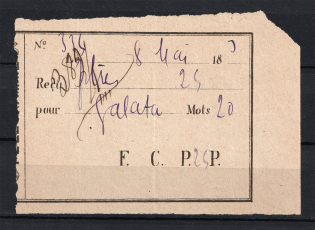 No 334
8 Mai 18
Reçu 25
pour Galata Mots 20
F. C. P. 25 P.